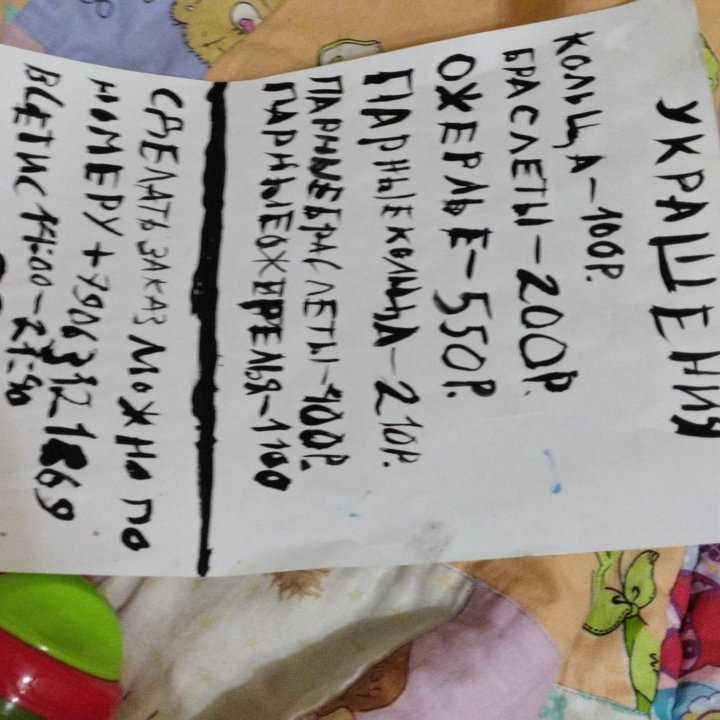 УКРАШЕНИЯ
КОЛЬЦА-100Р.
БРАСЛЕТЫ-200Р.
ОЖЕРЛЬЕ-550Р.
ПАРНЫЕ КОЛЬЦА-210Р.
ПАРНЫЕ БРАСЛЕТЫ-400Р.
ПАРНЫЕ ОЖЕРЕЛЬЯ-1100
СДЕЛАТЬ ЗАКАЗ МОЖНО ПО
НОМЕРУ +79063121869
14:00-